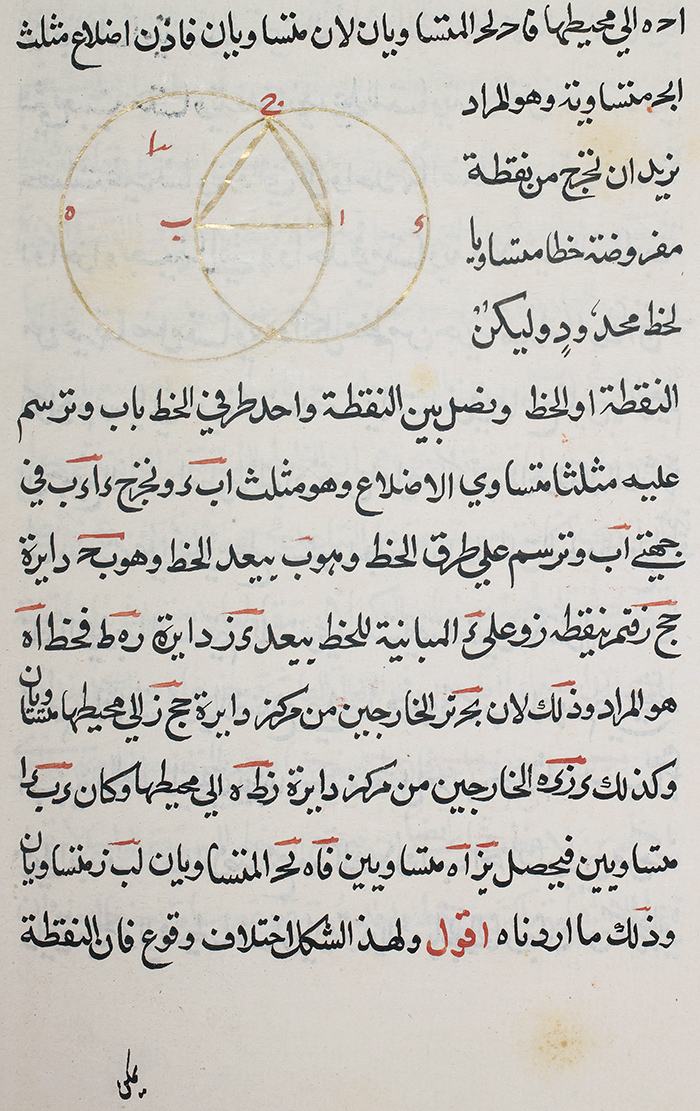 ا حه الي محيطها فا حـ لحـ المتساويان لان متساويان فاذن اضلاع مثلث
ابحـ متساوية وهو المراد
نريد ان نخرج من نقطة
مفروضة خطا متساويا
لخط محدود وليكن
النقطة ا والخط ونصل بين النقطة واحد طرفي الخط باب ونرسم
عليه مثلثا متساوي الاضلاع وهو مثلث ابء ونخرج ءا ءب في
جهتي اب ونرسم علي طرق الخط وهو ب ببعد الخط وهو بحـ دايرة
ححز فتمر بنقطه ز وعلى ء المباينة للخط ببعد ءز دايرة ره ط فخط اه
هو المراد وذلك لان بحـ بز الخارجين من مركز دايرة ححز الي محيطها متساويان
وكذلك ءز ءه الخارجين من مركز دايرة زطه الي محيطها وكان ءب ءا
متساويين فيحصل بز اه متساويين فاه بحـ المتساويان لب ز متساويان
وذلك ما اردناه اقول ولهذ الشكل اختلاف وقوع فان النقطة
ح
ه
ب
ا
ء